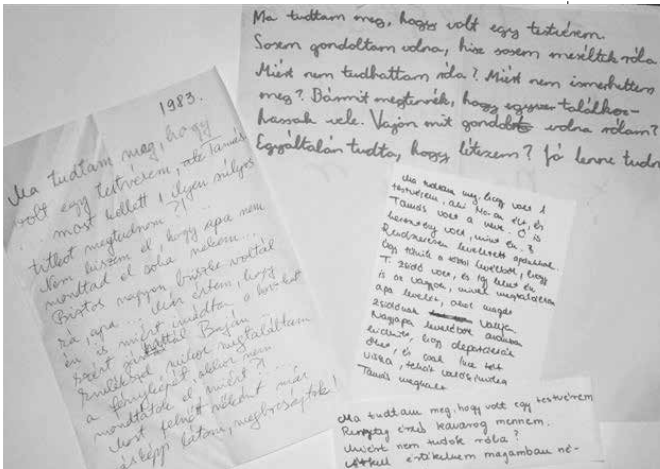 Ma tudtam meg, hogy volt egy testvérem.
Sosem gondoltam volna, hisz sosem meséltek róla
Miért nem tudhattam róla? Miért nem ismerhettem
meg? Bármit megtennék, hogy egyszer találkoz-
hassak vele. Vajon mit gondolt volna rólam?
Egyáltalán tudta, hogy létezem? Jó lenne tudn
1983.
Ma tudtam meg, hogy
volt egy testvérem, Tamás
most kellett 1 ilyen súlyos
titkot megtudnom?!
Nem hiszem el, hogy apa nem
mondtad el soha nekem...
Biztos nagyon büszke voltál
rá, apa. Nem értem, hogy
én is miért imádtam a
Baján?
Emlékszel, mikor megtaláltam
a fényképét, akkor nem
mondtátok el, miért?
Most felnőtt nőként már
látom, megbocsájtok!
Ma tudtam meg, hogy volt 1
testvérem, aki és
Tamás volt a neve. Ő is
volt, mint én.
Rendszeresen levelezett apámmal.
hogy
T. zsidó volt, és így lehet én
is az vagyok, mivel megtaláltam
apa levelét, ahol magát
zsidónak vallja.
Nagyapa
hogy deportálták
őket, és csak Ince tért
vissza, tehát valószínűleg
Tamás meghalt
Ma tudtam meg, hogy volt egy testvérem
Rengeteg érzés kavarog bennem.
Miért nem tudok róla?
értékelnem magamban né-